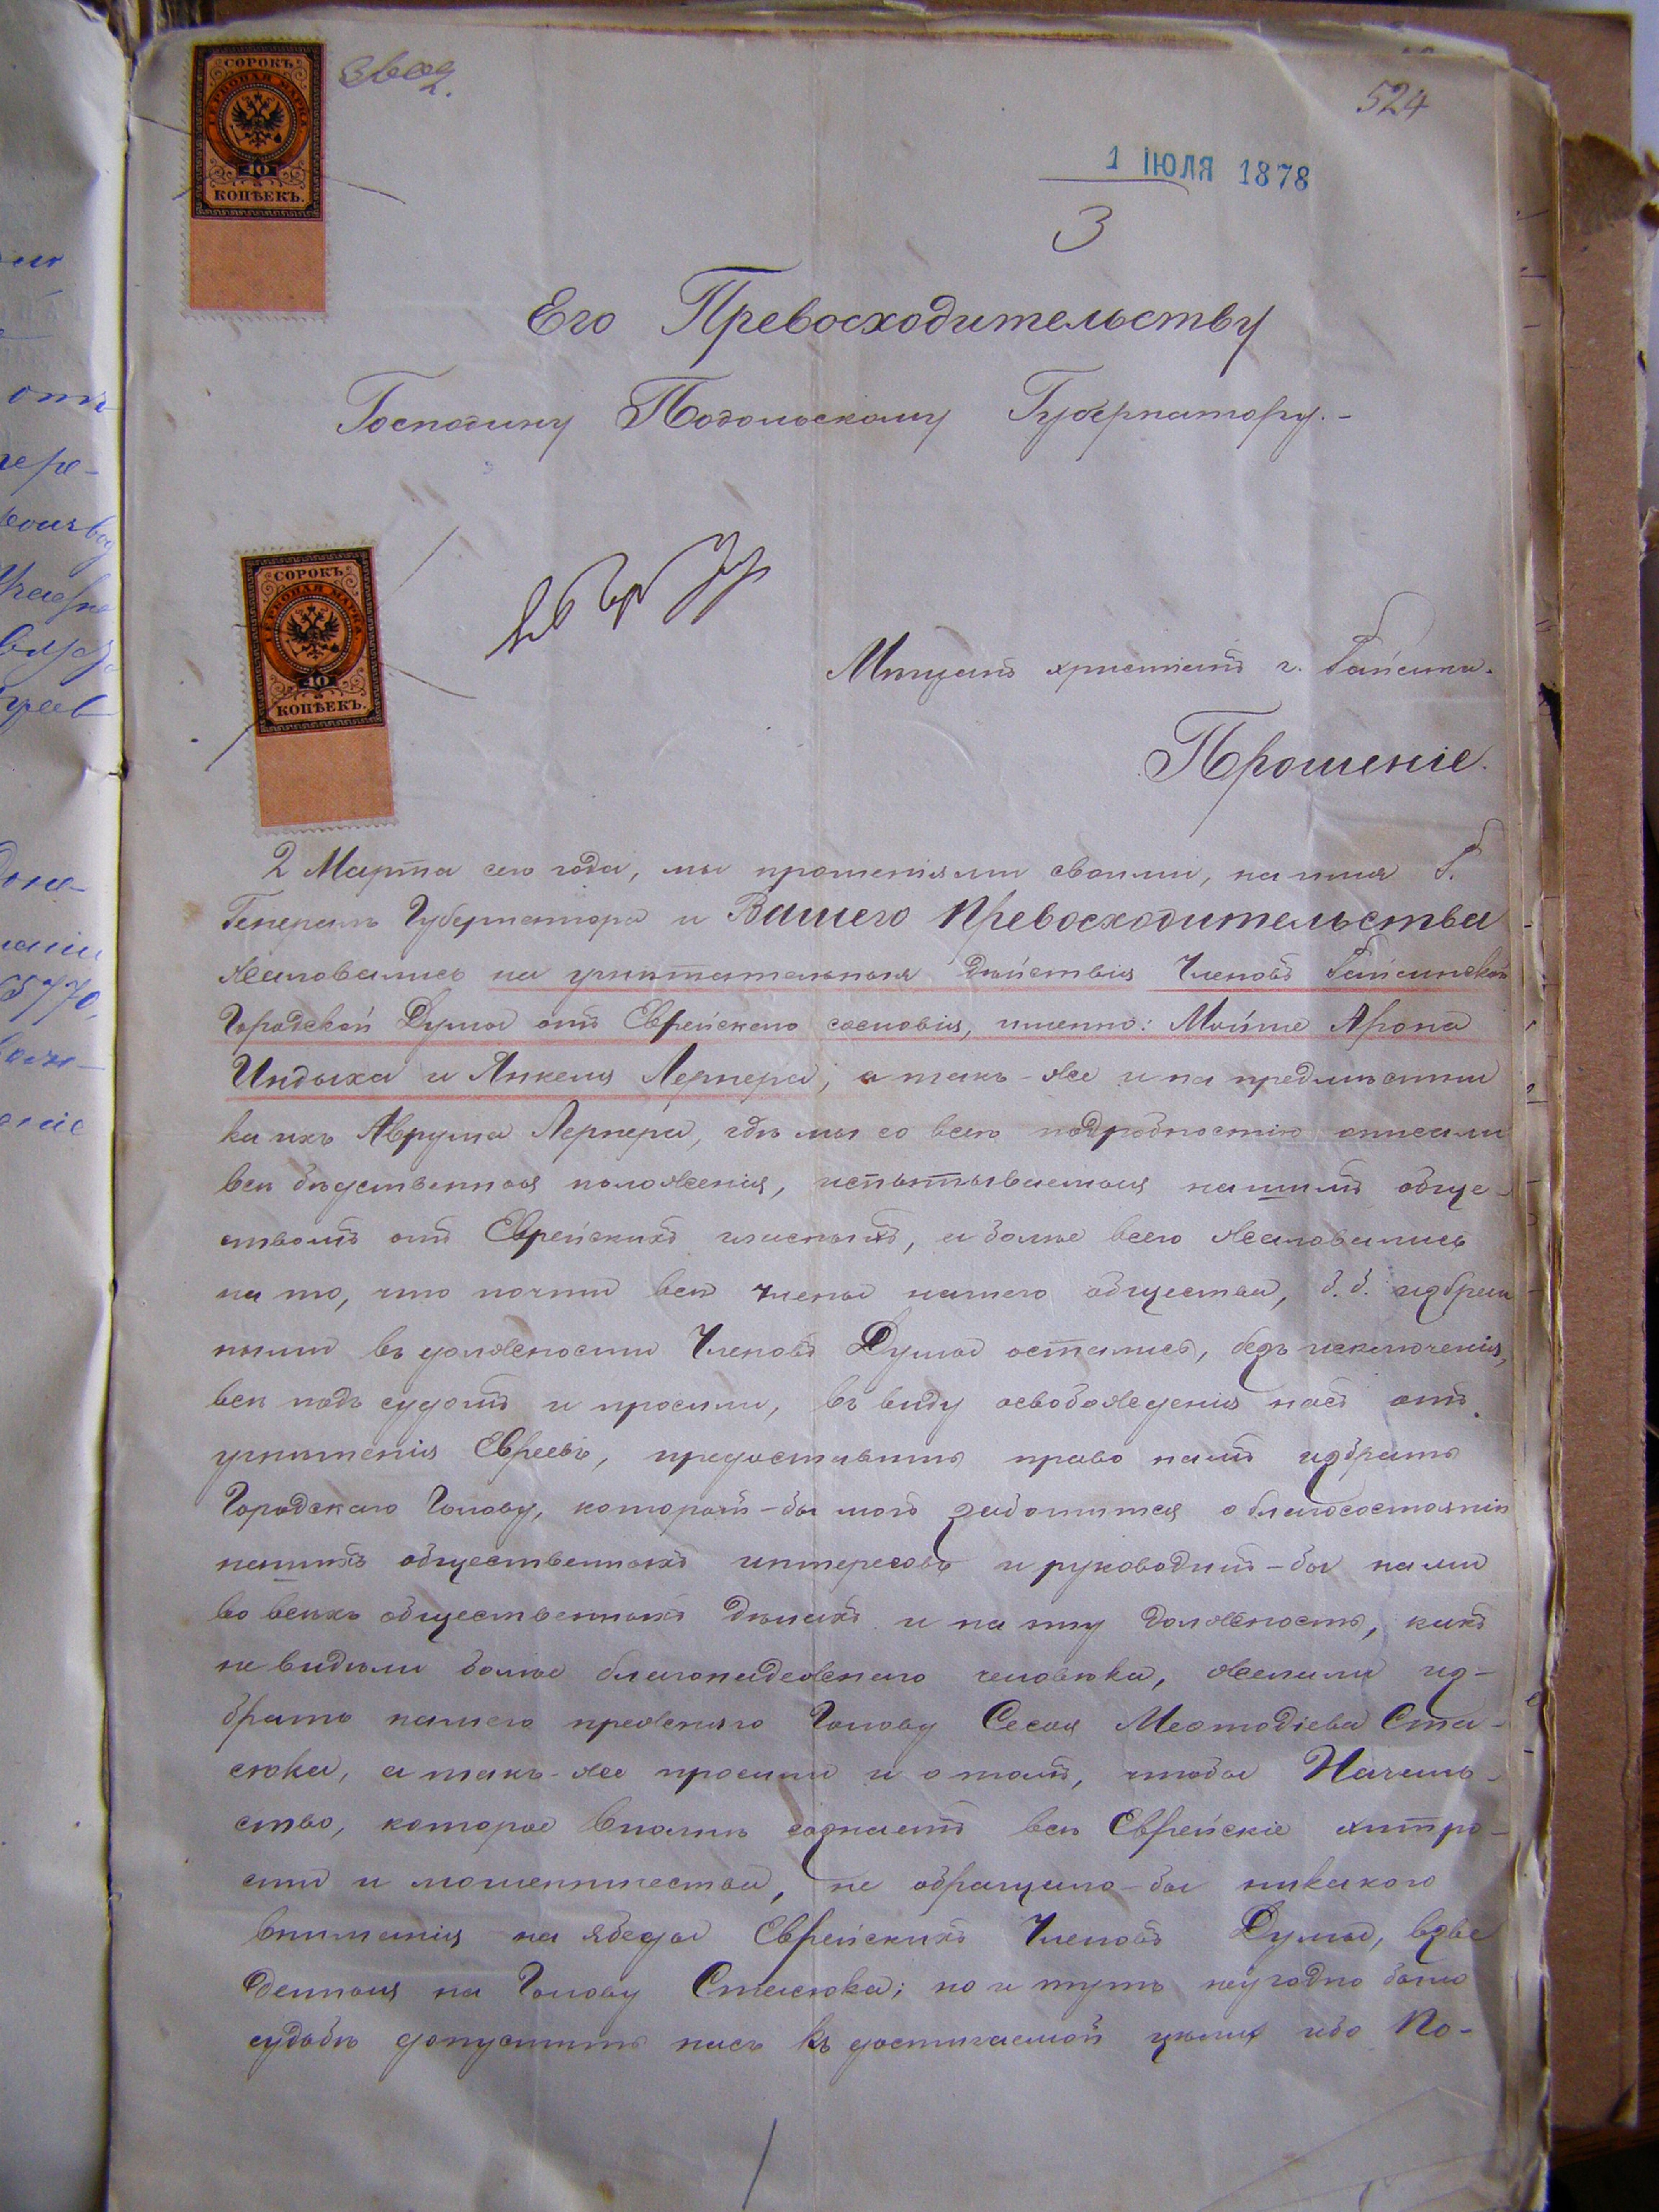 СОРОКЪ
ГЕРБОВАЯ МАРКА
40
КОПѢЕКЪ.
524
1 ІЮЛЯ 1878
3
Его Превосходительству
Господину Подольскому Губернатору.-
СОРОКЪ
ГЕРБОВАЯ МАРКА
40
КОПѢЕКЪ.
Мѣщанъ христіанъ г. Гайсина.
Прошеніе.
2 Марта сего года, мы прошеніями своими, на имя Г.
Генералъ Губернатора и Вашего Превосходительства
жаловались на угнѣтательныя дѣйствія Членовъ Гайсинской
Городской Думы отъ Еврейскаго сословія, именно: Мойше Арона
Индыха и Янкеля Лернера, а такъ-же и на предмѣстни
ка ихъ Аврума Лернера, гдѣ мы со всею подробностію описали
всѣ бѣдственныя положенія, испытываемыя нашимъ обще-
ствомъ отъ Еврейскихъ гласныхъ, а болѣе всего жаловались
на то, что почти всѣ члены нашего общества, б. б. избран
ными въ должности Членовъ Думы остались, безъ исключенія,
всѣ подъ судомъ и просили, въ виду освобожденія насъ отъ
угнѣтенія Евреевъ, предоставить право намъ избрать
Городскаго Голову, который-бы могъ заботится о благосостояніи
нашихъ общественныхъ интересовъ и руководилъ-бы нами
во всѣхъ общественныхъ дѣлахъ и на эту должность, какъ
не видѣли болѣе благонадежнаго человѣка, желали из-
брать нашего прежняго Голову Сесоя Меѳтодіева Ста-
сюка, а такъ-же просили и о томъ, чтобы Началь-
ство, которое вполнѣ сознаетъ всѣ Еврейскіе хитро-
сти и мошенничества, не обращало-бы никакого
вниманія на ябеды Еврейскихъ Членовъ Думы, взве
денныя на Голову Стасюка; но и тутъ неугодно было
судьбѣ допустить насъ къ достигаемой цѣли ибо По-